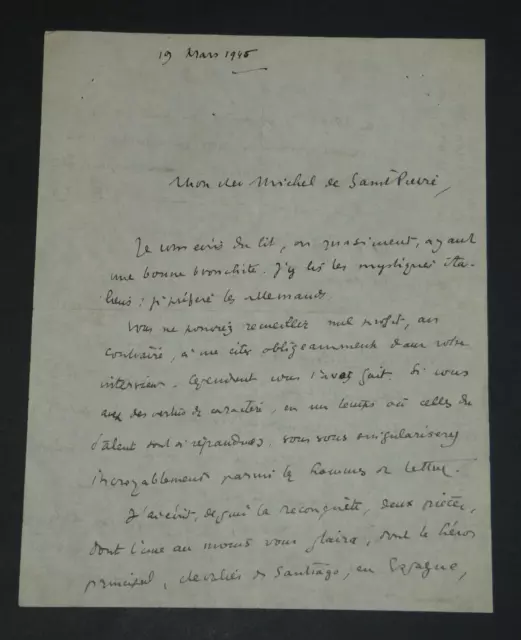 19 Mars 1946
Mon cher Michel de Saint Pierre,
Je vous écris du lit, ou quasiment, ayant
une bonne bronchite. J'y lis les mystiques ita-
liens ; je préfère les allemands.
Vous ne pouvez recueillir nul profit, au
contraire, à me citer obligeamment dans votre
interview. Cependant vous l'avez fait. Si vous
avez des vertus de caractère, en un temps où celles du
talent sont si répandues, vous vous singulariserez
incroyablement parmi les hommes de lettres.
J'ai écrit, depuis la reconquête, deux pièces,
dont l'une au moins vous plaira, dont le héros
principal, chevalier de Santiago, en Espagne,